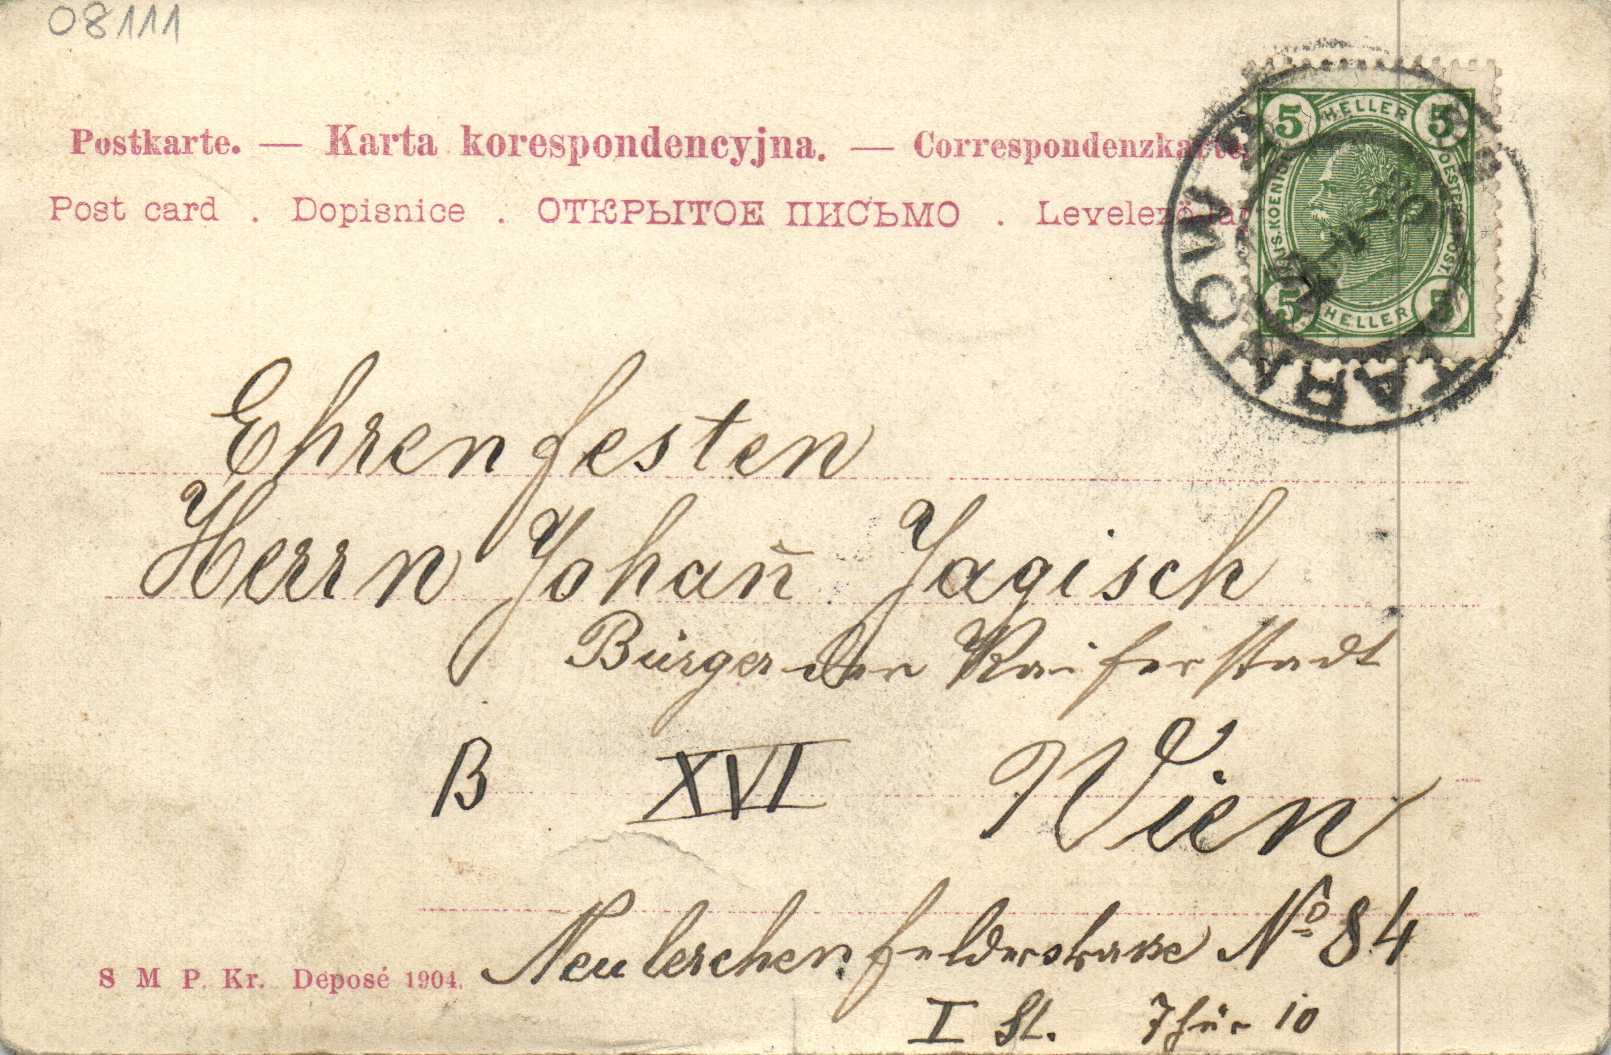 08111
Postkarte. — Karta korespondencyjna. — Correspondenzkarte
Post card . Dopisnice . ОТКРЫТОЕ ПИСЬМО . Levelező
5 HELLER 5
5 HELLER 5
KRAKOW
Ehrenfesten
Herrn Johan̄ Jagisch
Bürger der Kaiserstadt
B XVI Wien
Neulerchenfelderstrasse No 84
I St. Thür 10
S M P. Kr. Deposé 1904.